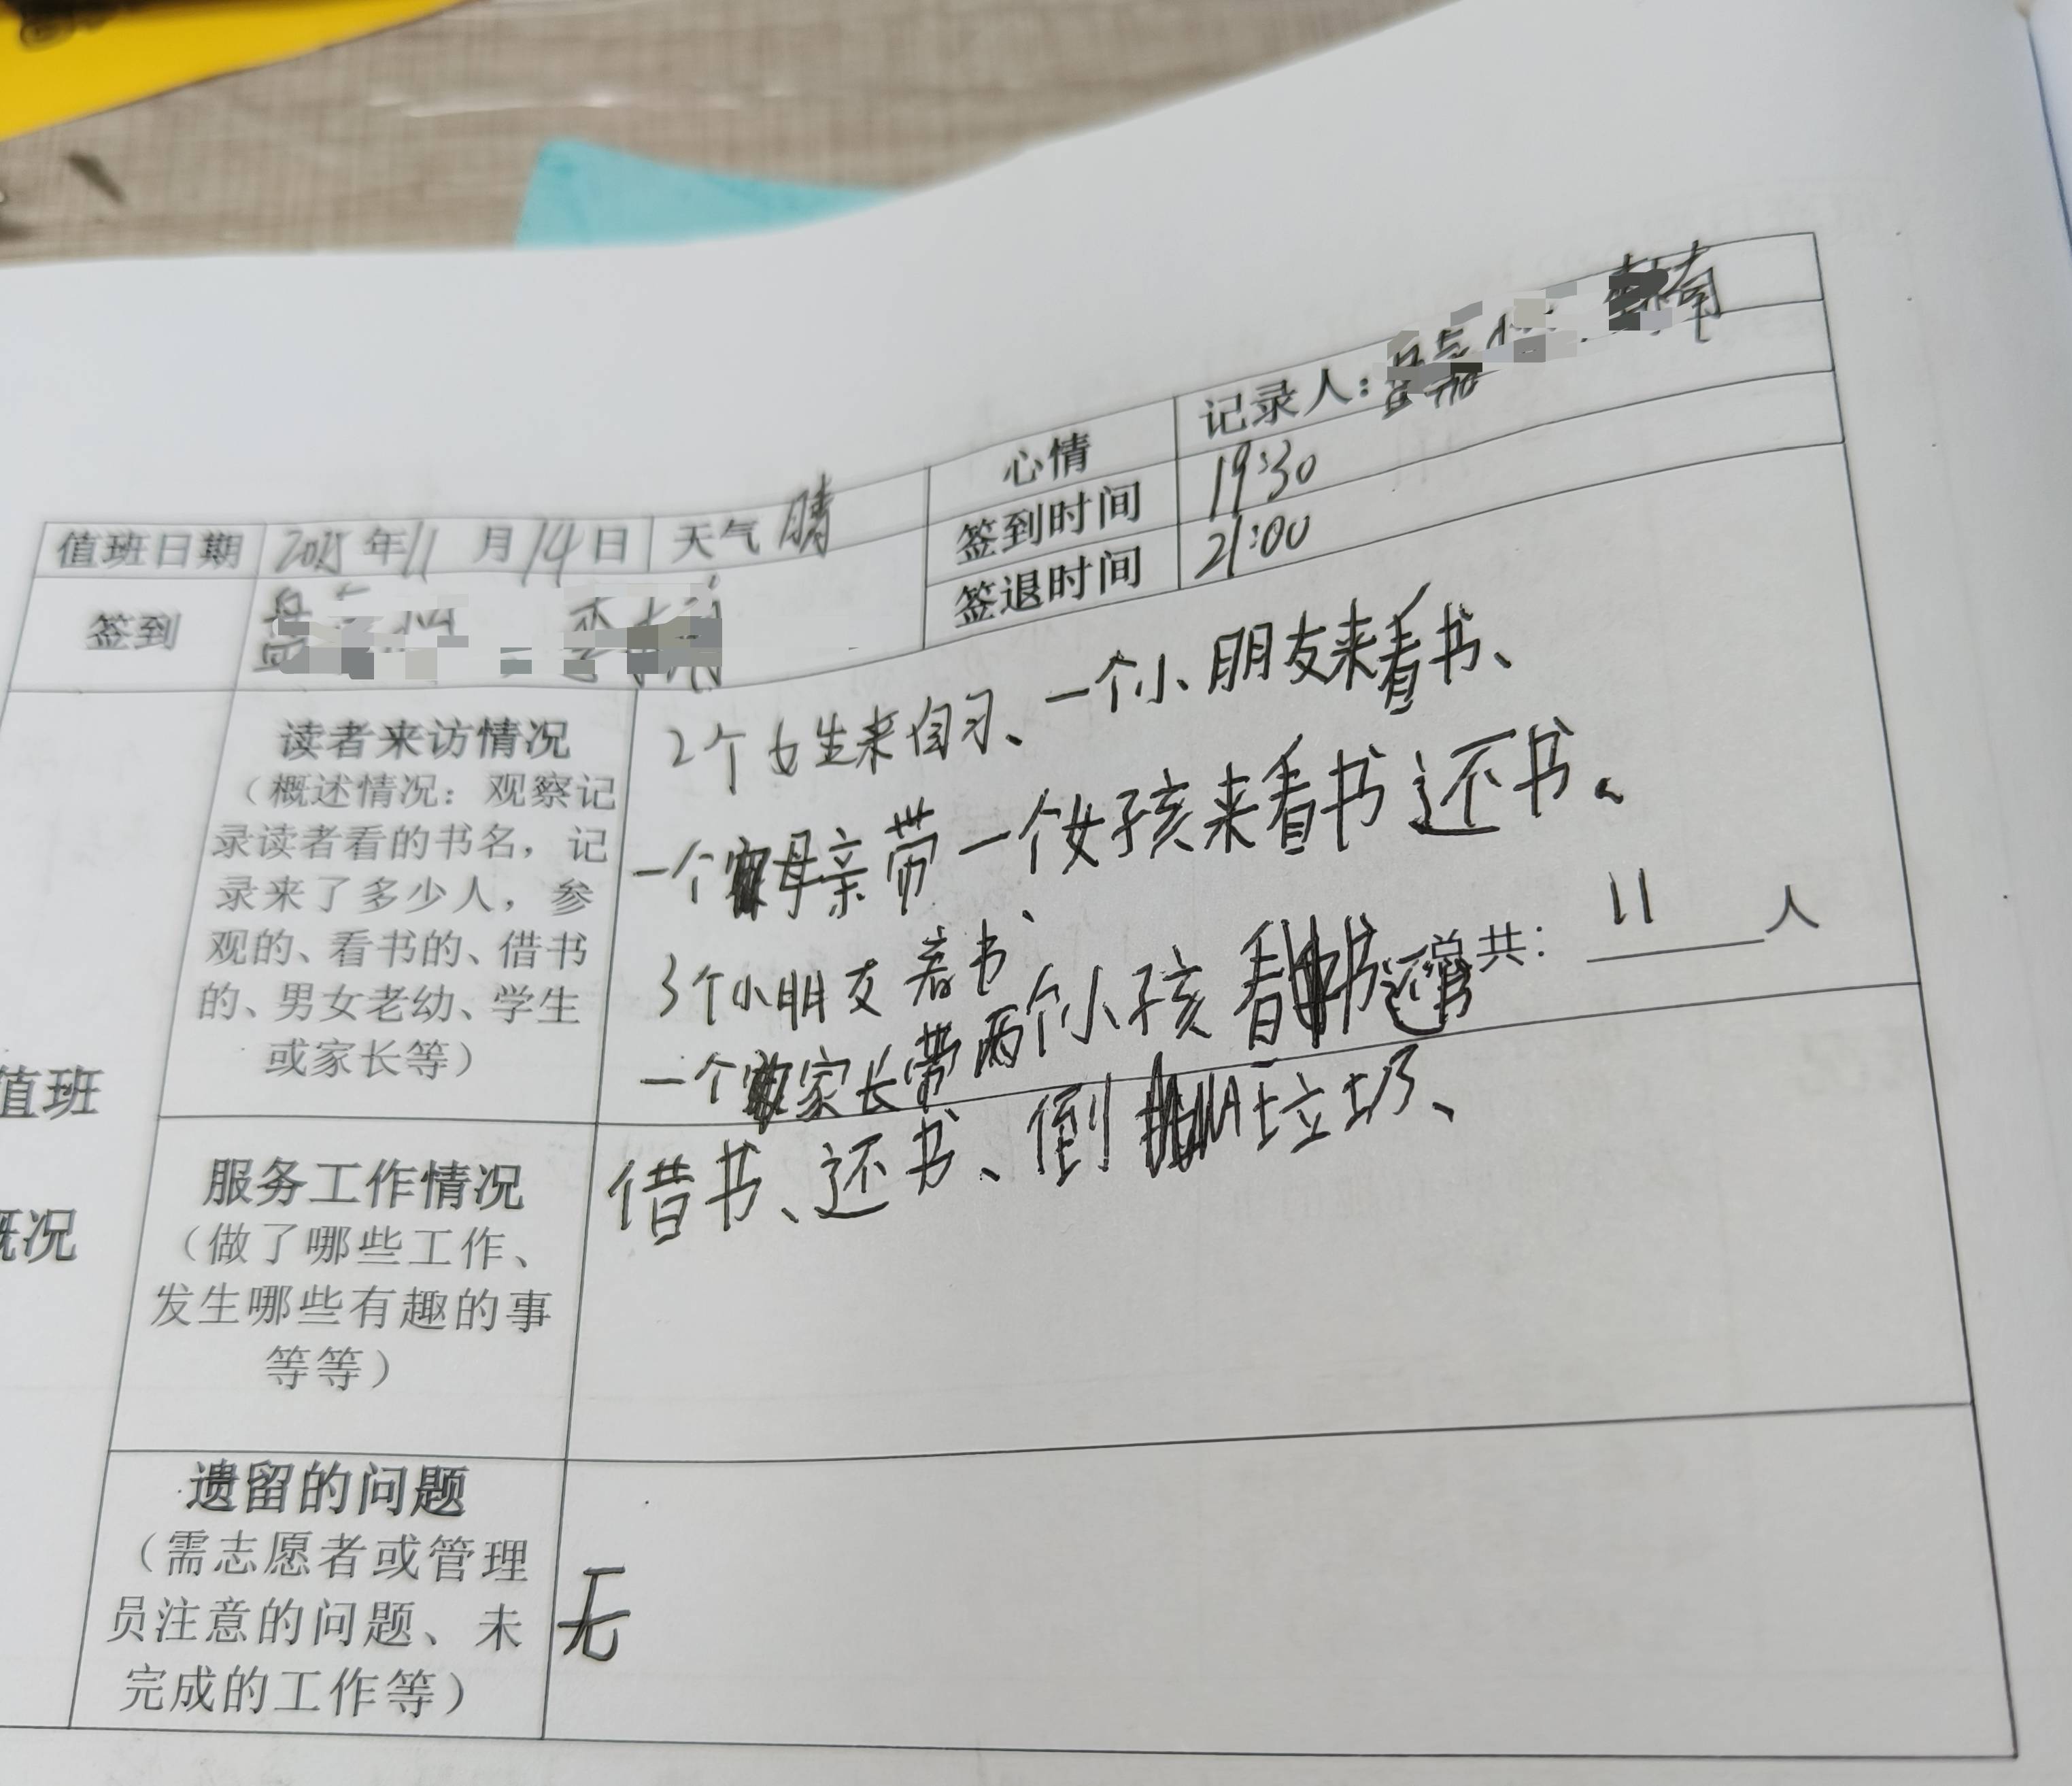 心情 记录人：
值班日期 2025年11月14日 天气 晴 签到时间 19:30
签到 签退时间 21:00
读者来访情况
（概述情况：观察记
录读者看的书名，记
录来了多少人，参
观的、看书的、借书
的、男女老幼、学生
或家长等）
2个女生来自习、一个小朋友来看书、
一个母亲带一个女孩来看书还书。
3个小朋友看书、
一个家长带两个小孩看书还书
总共：11人
值班
概况
服务工作情况
（做了哪些工作、
发生哪些有趣的事
等等）
借书、还书、倒垃圾、
遗留的问题
（需志愿者或管理
员注意的问题、未
完成的工作等）
无